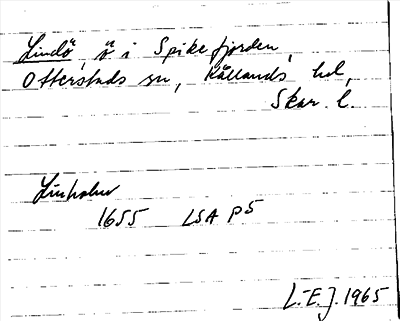 Lindö, ö i Spikefjorden,
Otterstads sn, Kållands hd,
Skar. l.
Linholm
1655 LSA P5
L.-E. J. 1965